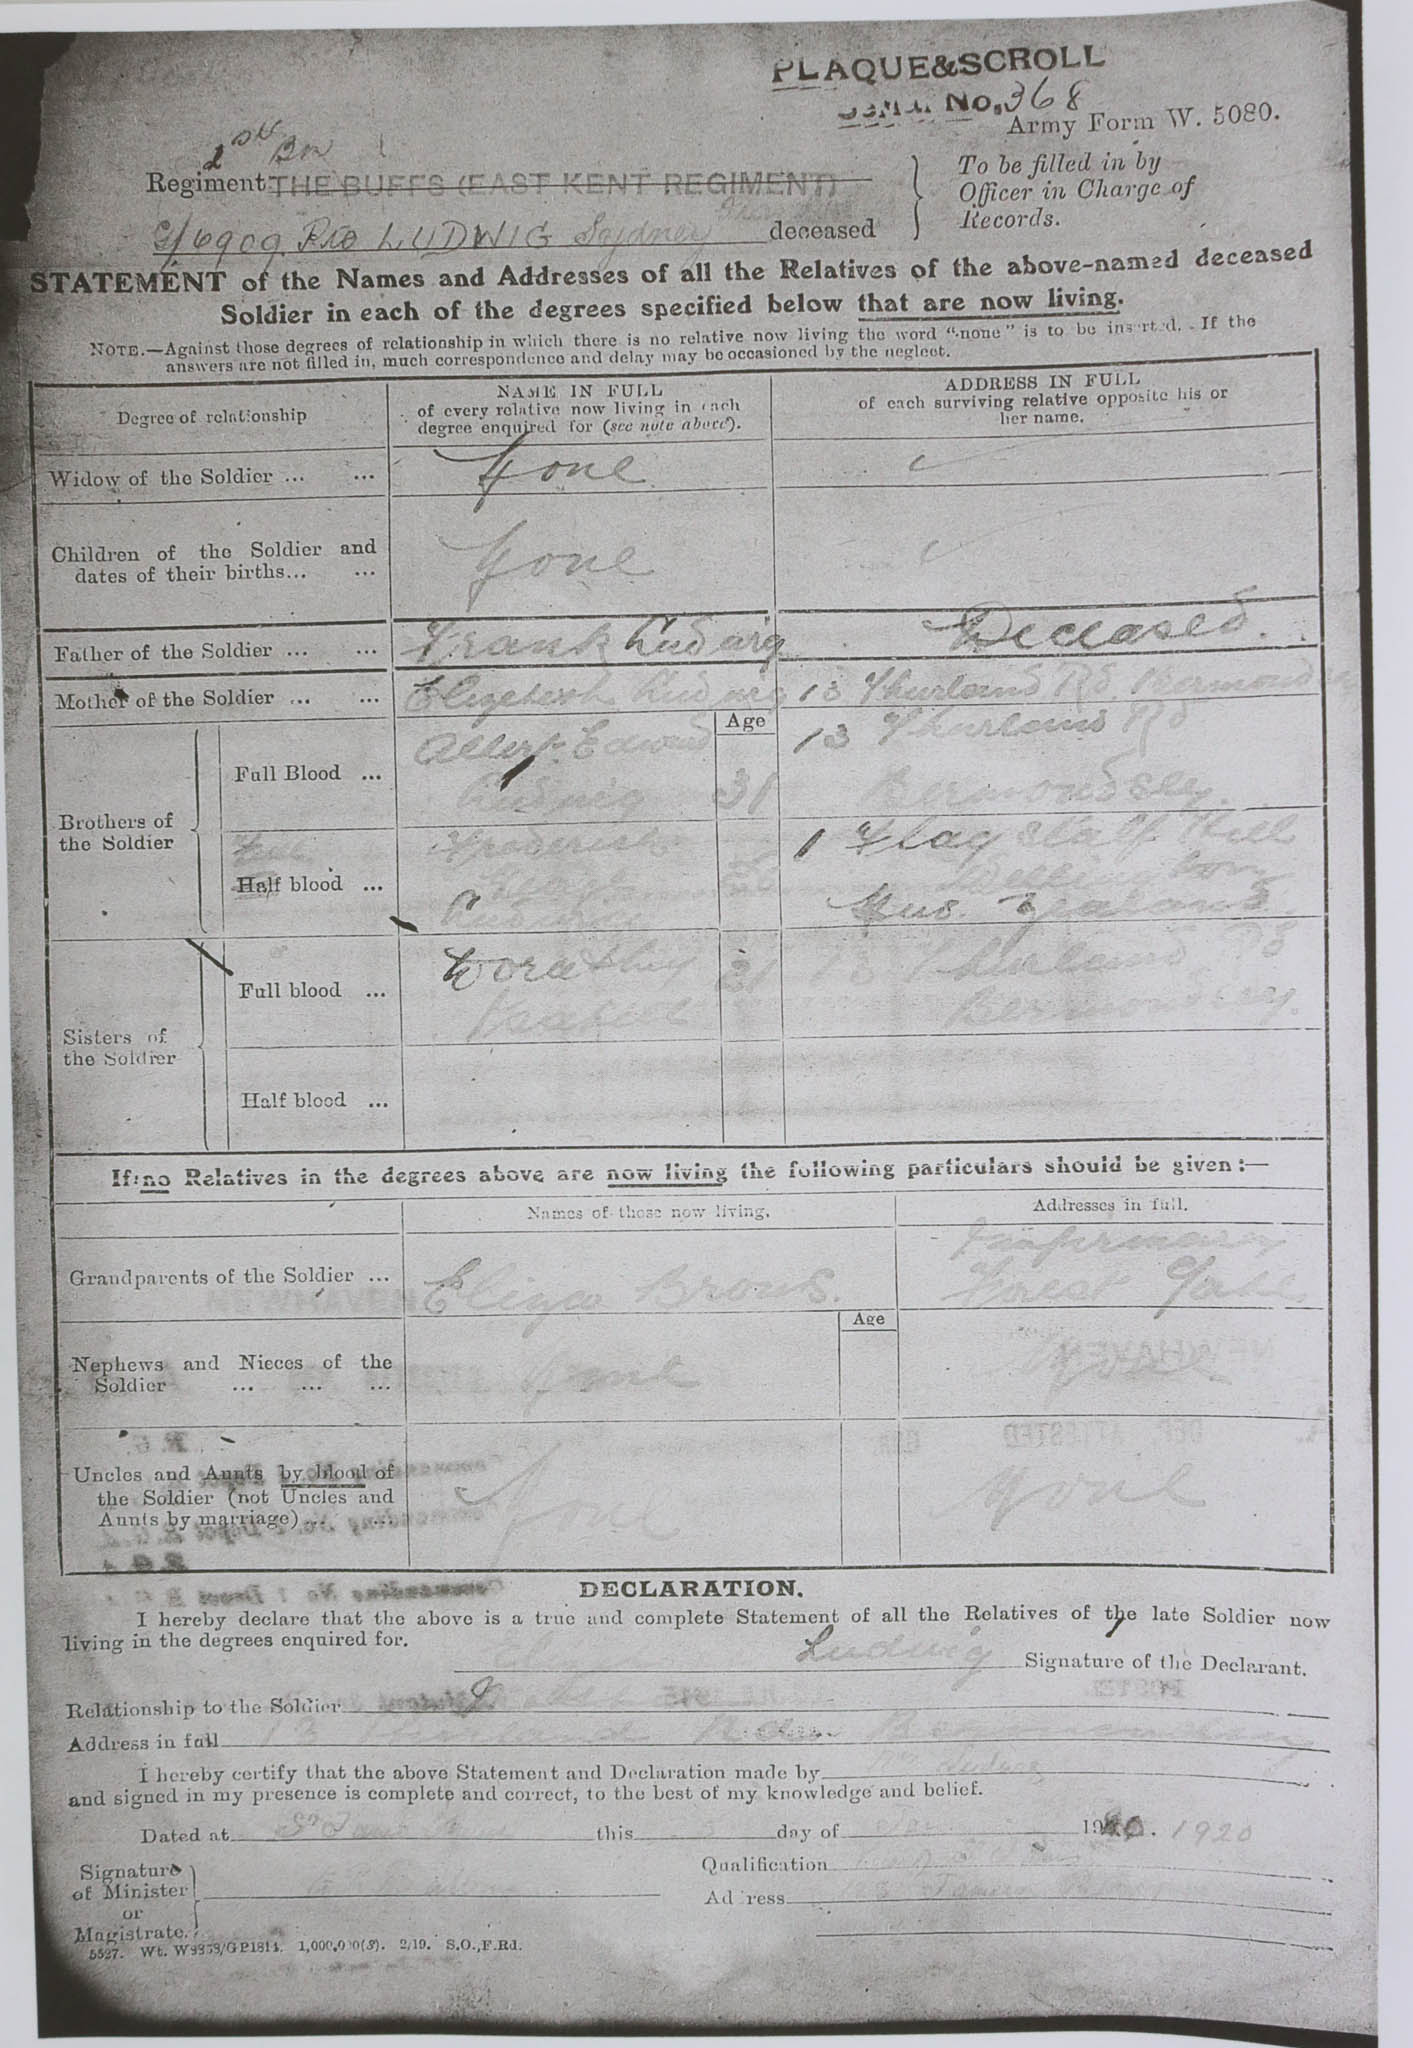 PLAQUE&SCROLL
No. 368
Army Form W. 5080.
2nd Bn
Regiment THE BUFFS (EAST KENT REGIMENT)
To be filled in by
Officer in Charge of
Records.
G/6909 Pte LUDWIG Sydney deceased
STATEMENT of the Names and Addresses of all the Relatives of the above-named deceased
Soldier in each of the degrees specified below that are now living.
NOTE.—Against those degrees of relationship in which there is no relative now living the word "none" is to be inserted. If the
answers are not filled in, much correspondence and delay may be occasioned by the neglect.
Degree of relationship
NAME IN FULL
of every relative now living in each
degree enquired for (see note above).
ADDRESS IN FULL
of each surviving relative opposite his or
her name.
Widow of the Soldier ... ... None
Children of the Soldier and
dates of their births... ... None
Father of the Soldier ... ... Frank Ludwig Deceased.
Mother of the Soldier ... ... Elizabeth Ludwig 13 Thurland Rd. Bermondsey
Age
Brothers of
the Soldier
Full Blood ... Albert Edward
Ludwig 31
13 Thurland Rd
Bermondsey.
Half blood ... Frederick
Ludwig
1 Flagstaff Hill
Wellington
New Zealand
Sisters of
the Soldier
Full blood ... Dorothy 21
13 Thurland Rd
Bermondsey.
Half blood ...
If no Relatives in the degrees above are now living the following particulars should be given:—
Names of those now living.
Addresses in full.
Grandparents of the Soldier ... Eliza Brows.
Infirmary
Forest Gate
Age
Nephews and Nieces of the
Soldier ... ... ... None None
Uncles and Aunts by blood of
the Soldier (not Uncles and
Aunts by marriage) ... ... None None
DECLARATION.
I hereby declare that the above is a true and complete Statement of all the Relatives of the late Soldier now
living in the degrees enquired for.
Ludwig Signature of the Declarant.
Relationship to the Soldier Mother
Address in full 13 Thurland Road Bermondsey
I hereby certify that the above Statement and Declaration made by Mrs Ludwig
and signed in my presence is complete and correct, to the best of my knowledge and belief.
Dated at this day of 19 1920
Signature
of Minister
or
Magistrate.
Qualification
Address
5527. Wt. W9353/GP1814. 1,000,000(S). 2/19. S.O.,F.Rd.